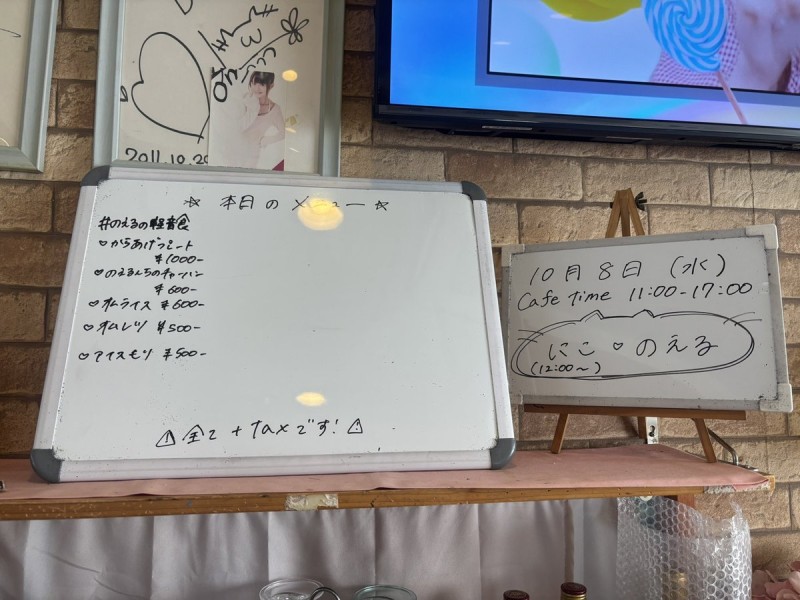 2011.10.20
☆ 本日のメニュー ☆
#のえるの軽音食
♡からあげプレート
¥1000-
♡のえるんちのチャーハン
¥600-
♡オムライス ¥600-
♡オムレツ ¥500-
♡アイスモリ ¥500-
⚠全て+taxです!⚠
10月8日(水)
Cafe time 11:00-17:00
にこ♡のえる
(12:00〜)